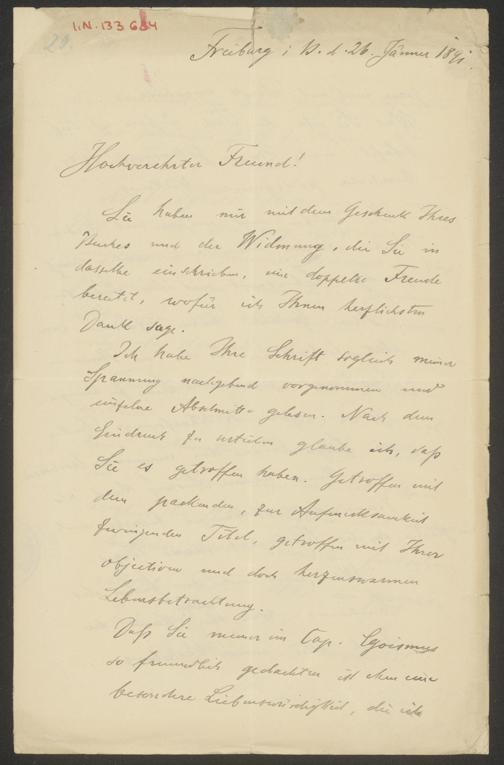 I.N. 133 684
20.
Freiburg i B. d. 26. Jänner 1891.
Hochverehrter Freund!
Sie haben mir mit dem Geschenk Ihres
Buches und der Widmung, die Sie in
dasselbe einschrieben, eine doppelte Freude
bereitet, wofür ich Ihnen herzlichsten
Dank sage.
Ich habe Ihre Schrift sogleich meiner
Spannung nachgebend vorgenommen und
einzelne Abschnitte gelesen. Nach dem
Eindruck zu urteilen glaube ich, daß
Sie es getroffen haben. Getroffen mit
dem packenden, zur Aufmerksamkeit
zwingenden Titel, getroffen mit Ihrer
objectiven und doch herzenswarmen
Lebensbetrachtung.
Daß Sie meiner im Cap. Egoismus
so freundlich gedachten ist eine
besondere Liebenswürdigkeit, die ich